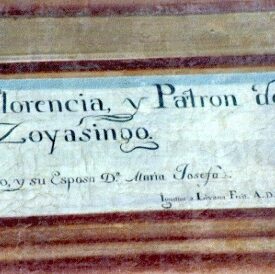 lorencia, y Patron de
Zoyasingo.
o, y su Esposa Dª Maria Josefa
Ignatius a Loyana Fecit. A. D.